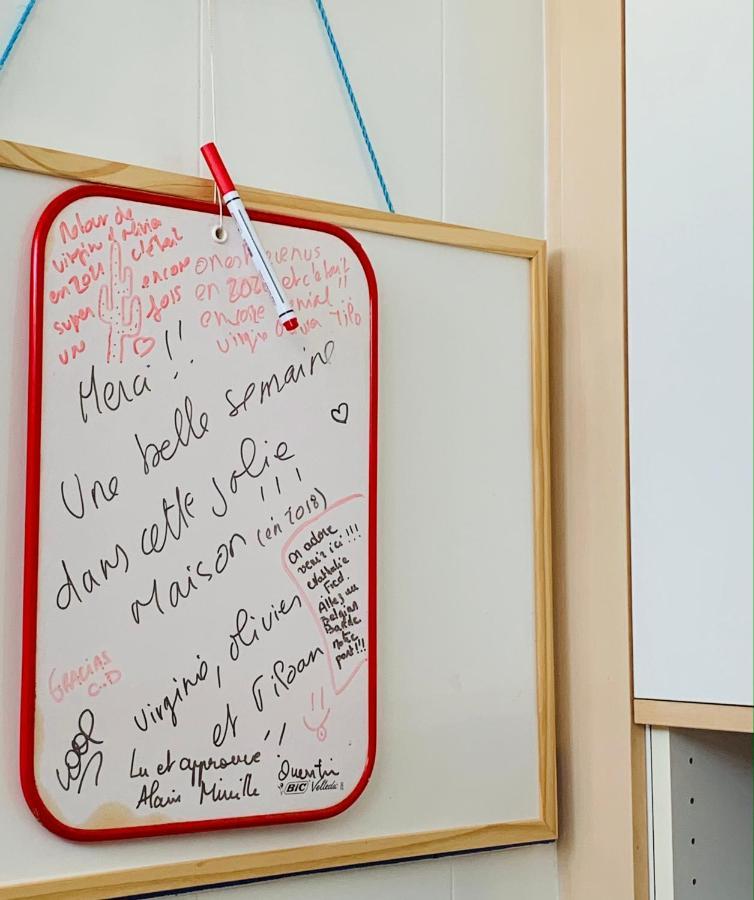 Retour de
virginie & olivier
en 2021 c'était
encore
super fois
un
on est revenus
en 2020 et c'était
encore génial !!
virginie Tipo
Merci !!
Une belle semaine
dans cette jolie
Maison !!! (en 2018)
on adore
venir ici !!!
Nathalie
Fred.
Allez au
Belgian
Barde
notre
part !!!
virginie, olivier
et Tiloan !!
GRACIAS
C.D
Lu et approuvé
Alain Mireille
Quentin
BIC Velleda